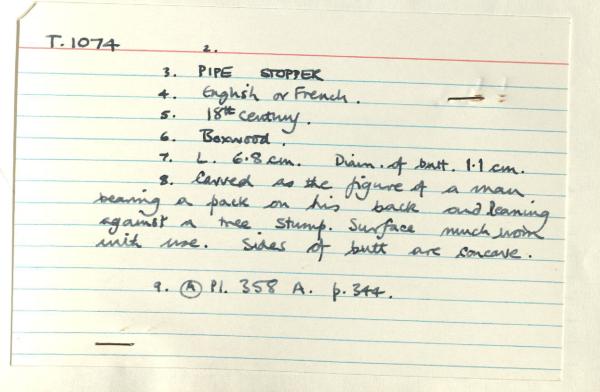 T.1074
2.
3. PIPE STOPPER
4. English or French.
5. 18th century.
6. Boxwood.
7. L. 6.8 cm. Diam. of butt. 1.1 cm.
8. Carved as the figure of a man
bearing a pack on his back and leaning
against a tree stump. Surface much worn
with use. Sides of butt are concave.
9. Ⓐ Pl. 358 A. p. 344.